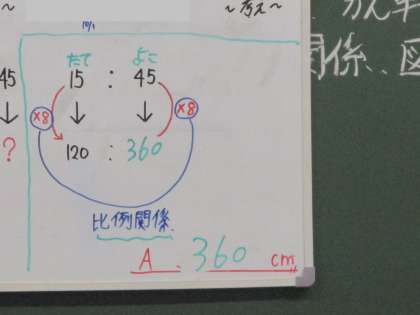 ～考え～
たて よこ
45 15 : 45
×8 ↓ ↓ ×8
? 120 : 360
比例関係
A. 360 cm
関係、図